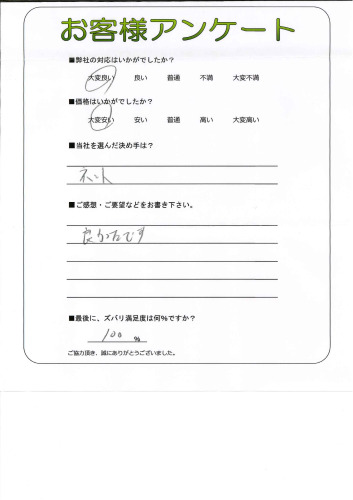 お客様アンケート
■弊社の対応はいかがでしたか？
大変良い 良い 普通 不満 大変不満
■価格はいかがでしたか？
大変安い 安い 普通 高い 大変高い
■当社を選んだ決め手は？
ネット
■ご感想・ご要望などをお書き下さい。
良かったです
■最後に、ズバリ満足度は何%ですか？
100 %
ご協力頂き、誠にありがとうございました。